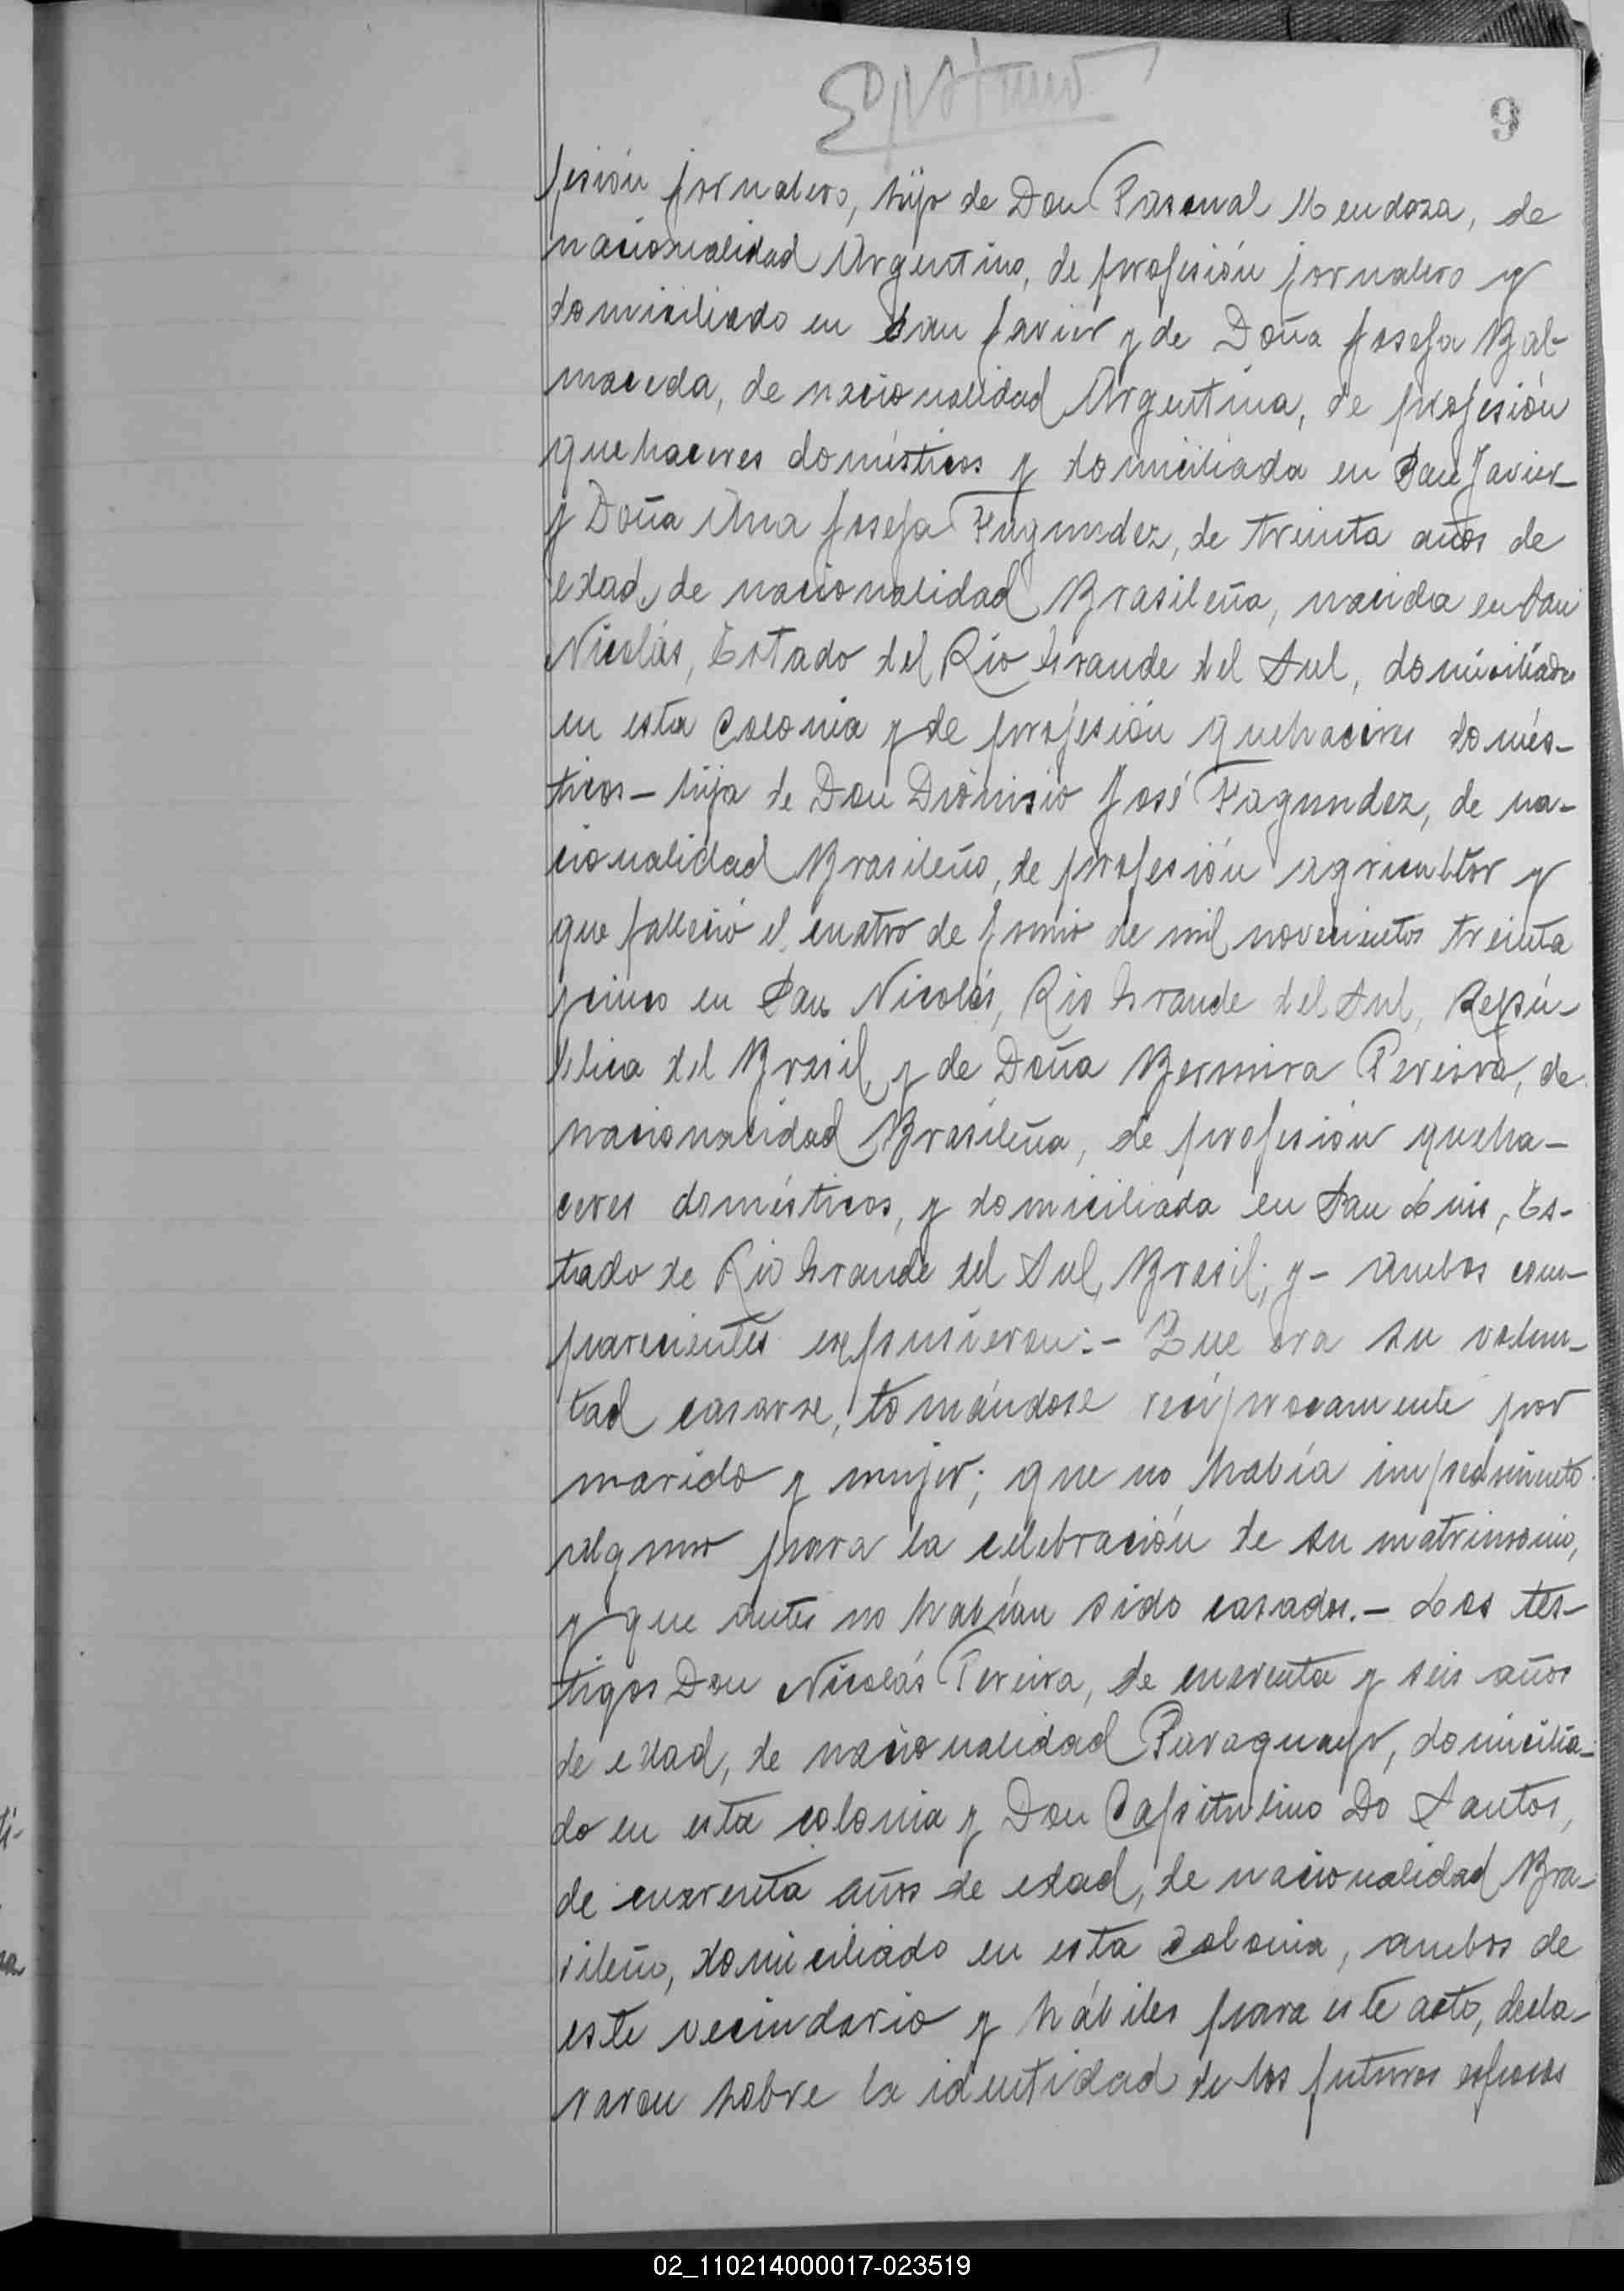 9
fesión jornalero, hijo de Don Pascual Mendoza, de
nacionalidad Argentino, de profesión jornalero y
domiciliado en San Javier y de Doña Josefa Bal-
maceda, de nacionalidad Argentina, de profesión
quehaceres domésticos y domiciliada en San Javier_
y Doña Ana Josefa Fagundez, de treinta años de
edad, de nacionalidad Brasileña, nacida en San
Nicolás, Estado del Rio Grande del Sul, domiciliada
en esta Colonia y de profesión quehaceres domés-
ticos- hija de Don Dionisio José Fagundez, de na-
cionalidad Brasileño, de profesión agricultor y
que falleció el cuatro de Junio de mil novecientos treinta
y cinco en San Nicolás, Rio Grande del Sul, Repú-
blica del Brasil, y de Doña Bermira Pereira, de
nacionalidad Brasileña, de profesión queha-
ceres domésticos, y domiciliada en San Luis, Es-
tado de Rio Grande del Sul, Brasil; y- Ambos com-
parecientes expusieron:- Que era su volun-
tad casarse, tomándose recíprocamente por
marido y mujer; que no había impedimento
alguno para la celebración de su matrimonio,
y que antes no habían sido casados.- Los tes-
tigos Don Nicolás Pereira, de cuarenta y seis años
de edad, de nacionalidad Paraguayo, domicilia-
do en esta colonia y Don Capitulino Do Santos,
de cuarenta años de edad, de nacionalidad Bra-
sileño, domiciliado en esta Colonia, ambos de
este vecindario y hábiles para este acto, decla-
raron sobre la identidad de los futuros esposos
02_110214000017-023519